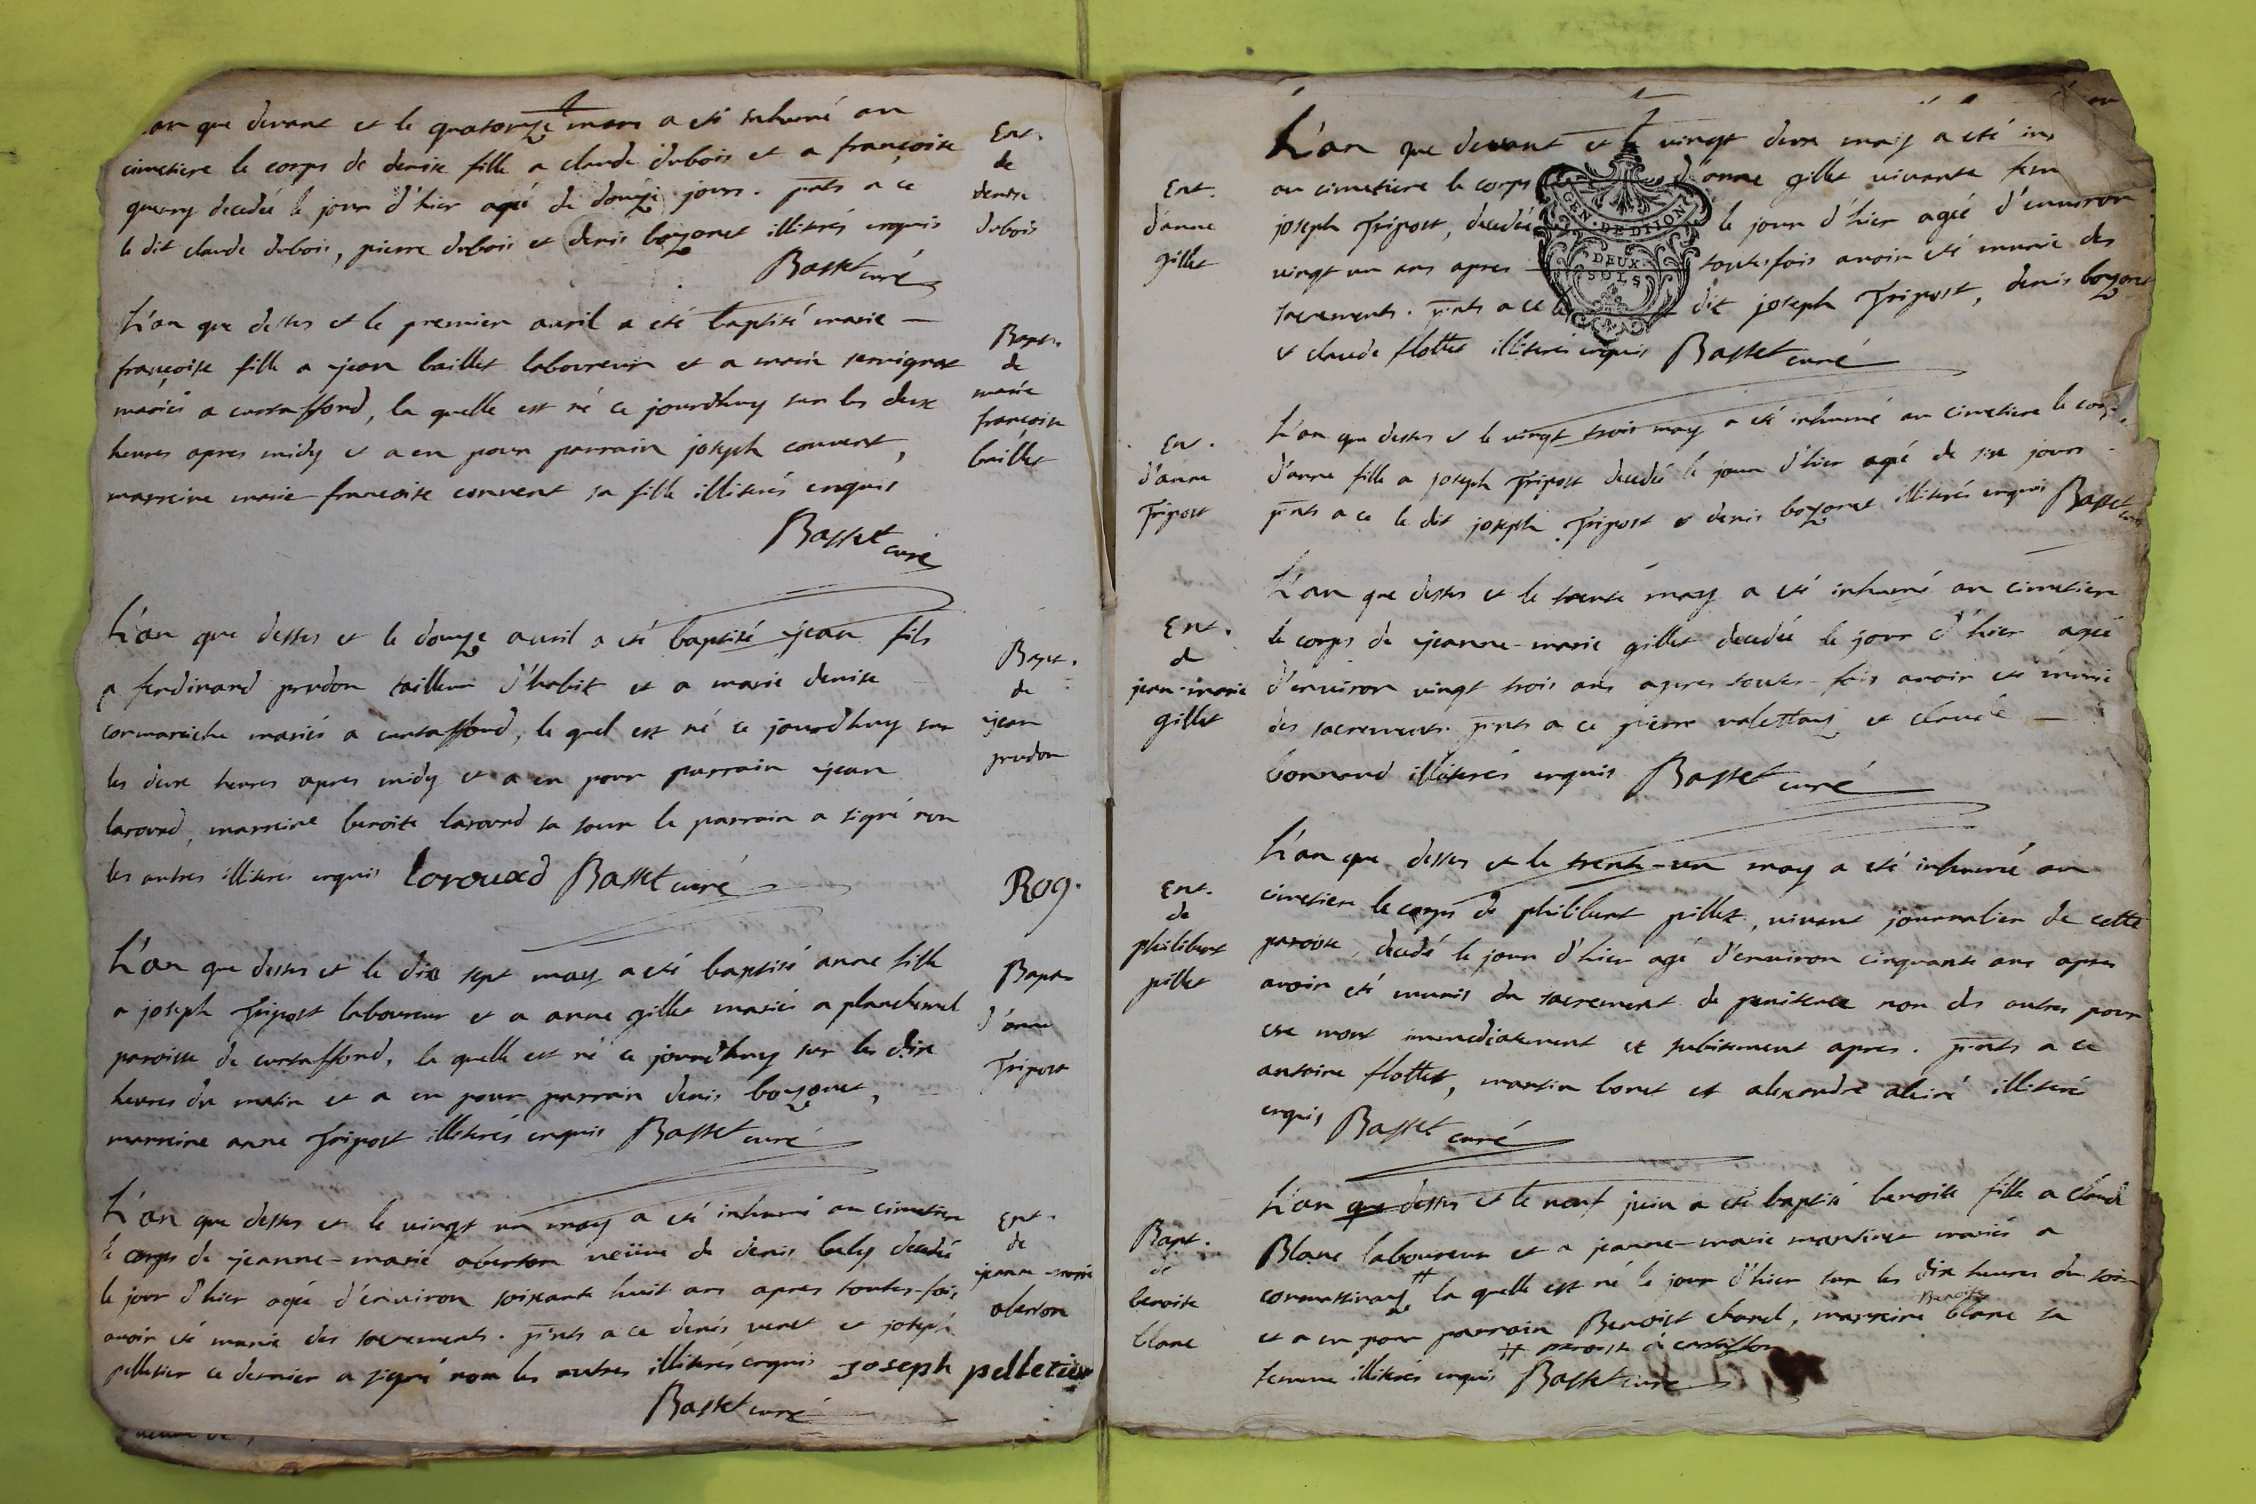 an que devant et le quatorze mars a eté inhumé au
cimetiere le corps de denise fille a claude dubois et a françoise
guerry decedée le jour d'hier agée de douze jours. pnts a ce
le dit claude dubois, pierre dubois et denis bozonet illiterés enquis
Basset curé
Ent.
de
denise
dubois
L'an que dessus et le premier avril a eté baptisé marie
françoise fille a jean baillet laboureur et a marie servignat
mariés a curtaffond, la quelle est né ce jourdhuy sur les deux
heures apres midy et a eu pour parrain joseph convert,
marreine marie françoise convert sa fille illiterés enquis
Basset curé
Bapt.
de
marie
françoise
baillet
L'an que dessus et le douze avril a eté baptisé jean fils
a ferdinand prudon tailleur d'habit et a marie denise
cormareche mariés a curtaffond, le quel est né ce jourdhuy sur
les deux heures apres midy et a eu pour parrain jean
larouad, marreine benoite larouad sa soeur le parrain a signé non
les autres illiterés enquis lorouad Basset curé
Bapt.
de
jean
prudon
Rog.
L'an que dessus et le dix sept may a eté baptisé anne fille
a joseph Tripost laboureur et a anne gillet mariés a planchemel
paroisse de curtaffond, la quelle est né ce jourdhuy sur les dix
heures du matin et a eu pour parrain denis bozonet,
marreine anne Tripost illiterés enquis Basset curé
Bapt.
d'anne
Tripost
L'an que dessus et le vingt un may a eté inhumé au cimetiere
le corps de jeanne-marie oberton veüve de denis buly decedée
le jour d'hier agée d'environ soixante huit ans apres toutes-fois
avoir eté munie des sacrements. pnts a ce denis venet et joseph
pelletier ce dernier a signé non les autres illiterés enquis joseph pelletier
Basset curé
Ent.
de
jeanne-marie
oberton
L'an que devant et le vingt deux may a eté in
au cimetiere le corps d'anne gillet vivante fem
joseph Tripost, decedée le jour d'hier agée d'environ
vingt un ans apres toutesfois avoir eté munie des
sacrements. pnts a ce le dit joseph Tripost, denis bozonet
et claude flottet illiterés enquis Basset curé
GEN. DE DIJON
DEUX
SOLS
Ent.
d'anne
gillet
L'an que dessus et le vingt trois may a eté inhumé au cimetiere le corps
d'anne fille a joseph Tripost decedée le jour d'hier agé de six jours.
pnts a ce le dit joseph Tripost et denis bozonet illiterés enquis Basset curé
Ent.
d'anne
Tripost
L'an que dessus et le trente may a eté inhumé au cimetiere
le corps de jeanne-marie gillet decedée le jour d'hier agée
d'environ vingt trois ans apres toutes-fois avoir eté munie
des sacrements. pnts a ce pierre valettany et claude
bonnard illiterés enquis Basset curé
Ent.
de
jean-marie
gillet
L'an que dessus et le trente-un may a eté inhumé au
cimetiere le corps de philibert pillet, vivant journalier de cette
paroisse, decedé le jour d'hier agé d'environ cinquante ans apres
avoir eté munis du sacrement de penitence non des autres pour
etre mort immediatement et subitement apres. pnts a ce
antoine flottet, martin bonet et alexandre aleiré illiterés
enquis Basset curé
Ent.
de
philibert
pillet
L'an que dessus et le neuf juin a eté baptisé benoite fille a claude
Blanc laboureur et a jeanne-marie martinet mariés a
cormassinay # la quelle est né le jour d'hier sur les dix heures du soir
et a eu pour parrain Benoist chanel, marreine Benoite blanc sa
# paroisse de curtaffon
femme illiterés enquis Basset curé
Bapt.
de
benoite
blanc